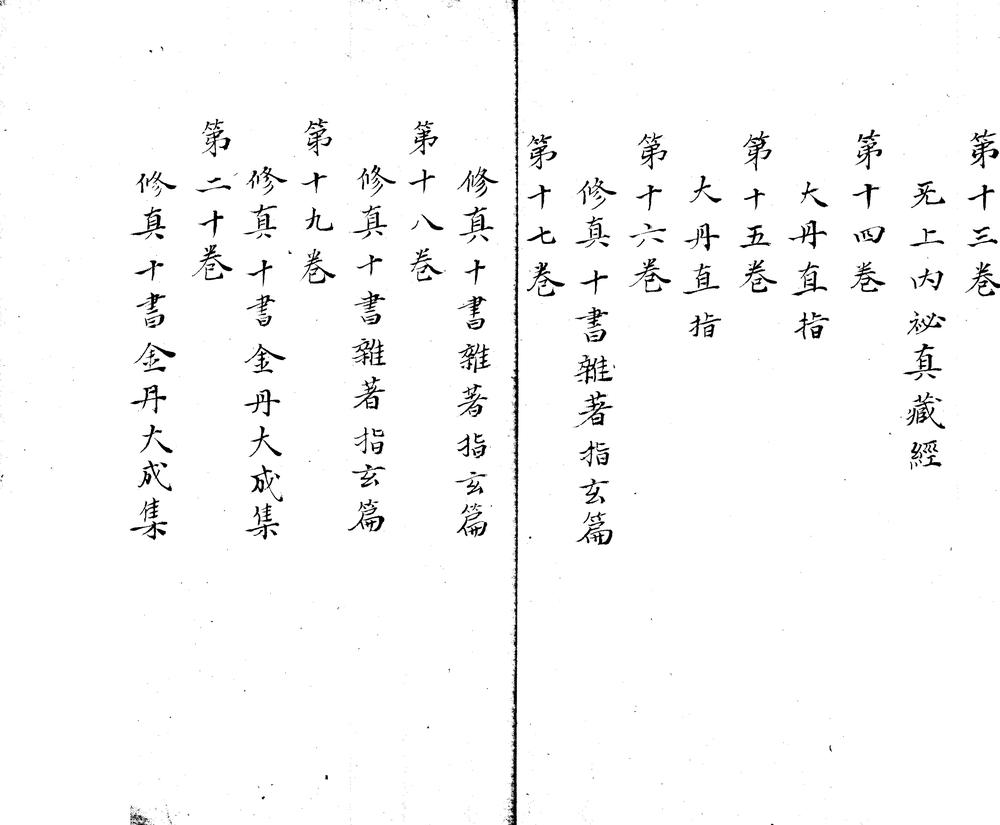 第十三卷
无上內祕真藏經
第十四卷
大丹直指
第十五卷
大丹直指
第十六卷
修真十書雜著指玄篇
第十七卷
修真十書雜著指玄篇
第十八卷
修真十書雜著指玄篇
第十九卷
修真十書金丹大成集
第二十卷
修真十書金丹大成集